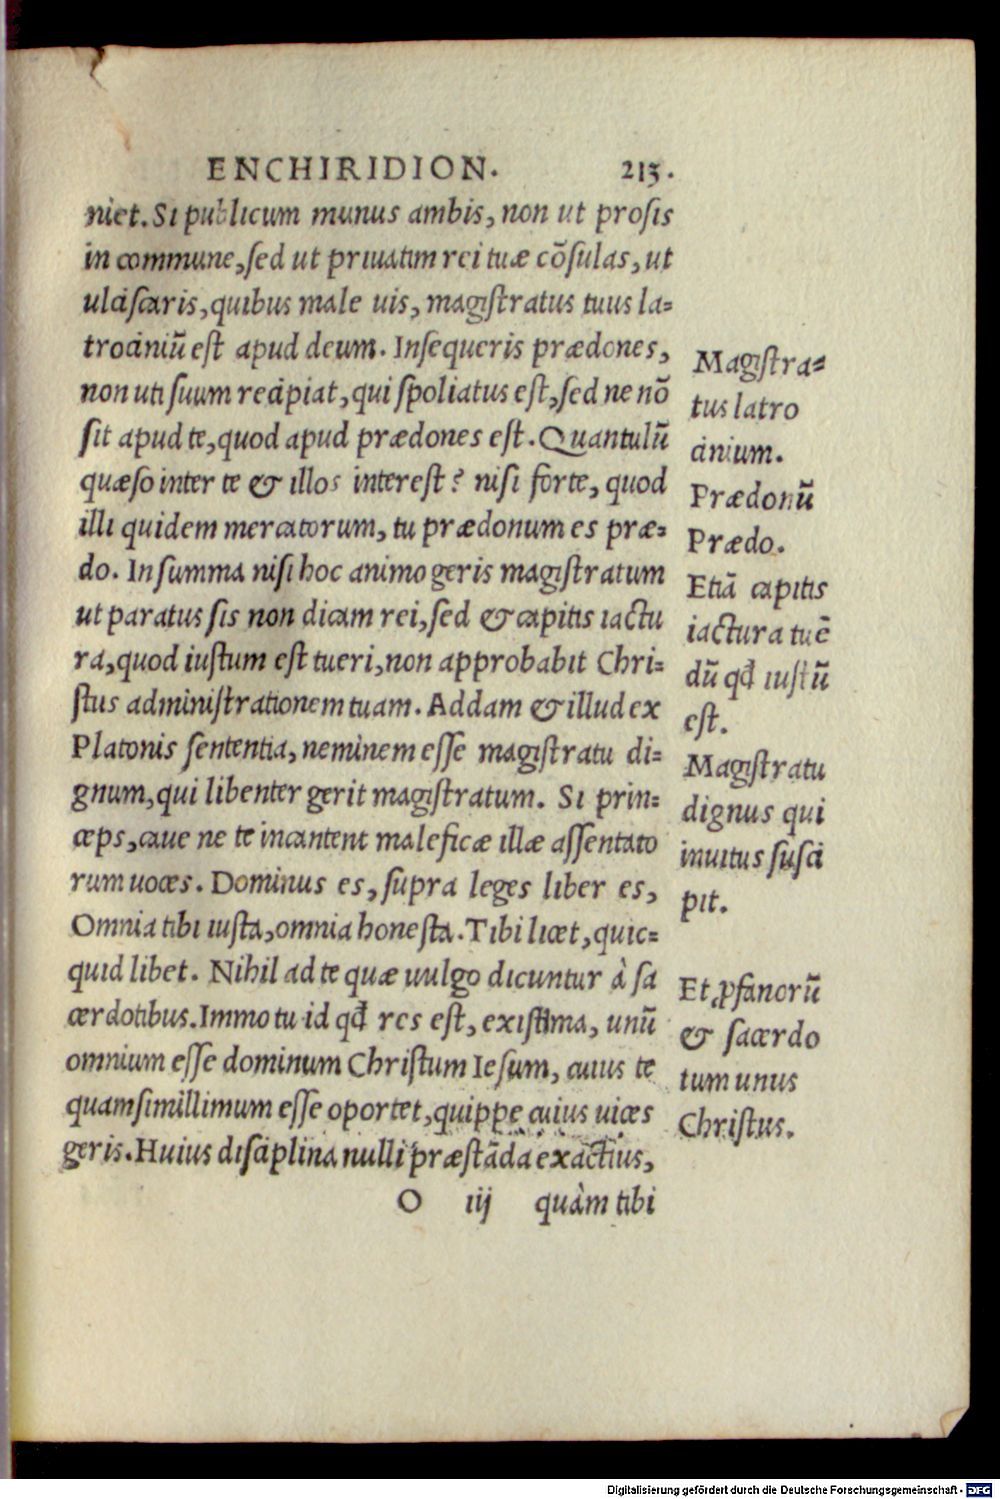 ENCHIRIDION. 213.
niet. Si publicum munus ambis, non ut prosis
in commune, sed ut priuatim rei tuæ cōsulas, ut
ulciscaris, quibus male uis, magistratus tuus la=
trociniū est apud deum. Insequeris prædones,
non uti suum recipiat, qui spoliatus est, sed ne nō
sit apud te, quod apud prædones est. Quantulū
quæso inter te & illos interest? nisi forte, quod
illi quidem mercatorum, tu prædonum es præ=
do. In summa nisi hoc animo geris magistratum
ut paratus sis non dicam rei, sed & capitis iactu
ra, quod iustum est tueri, non approbabit Chri=
stus administrationem tuam. Addam & illud ex
Platonis sententia, neminem esse magistratu di=
gnum, qui libenter gerit magistratum. Si prin=
ceps, caue ne te incantent maleficæ illæ assentato
rum uoces. Dominus es, supra leges liber es,
Omnia tibi iusta, omnia honesta. Tibi licet, quic=
quid libet. Nihil ad te quæ uulgo dicuntur à sa
cerdotibus. Immo tu id qđ res est, existima, unū
omnium esse dominum Christum Iesum, cuius te
quamsimillimum esse oportet, quippe cuius uices
geris. Huius disciplina nulli præstāda exactius,
O iij quàm tibi
Magistra=
tus latro
cinium.
Prædonū
Prædo.
Etiā capitis
iactura tuē
dū qđ iustū
est.
Magistratu
dignus qui
inuitus susci
pit.
Et ꝓfanorū
& sacerdo
tum unus
Christus.
Digitalisierung gefördert durch die Deutsche Forschungsgemeinschaft - DFG